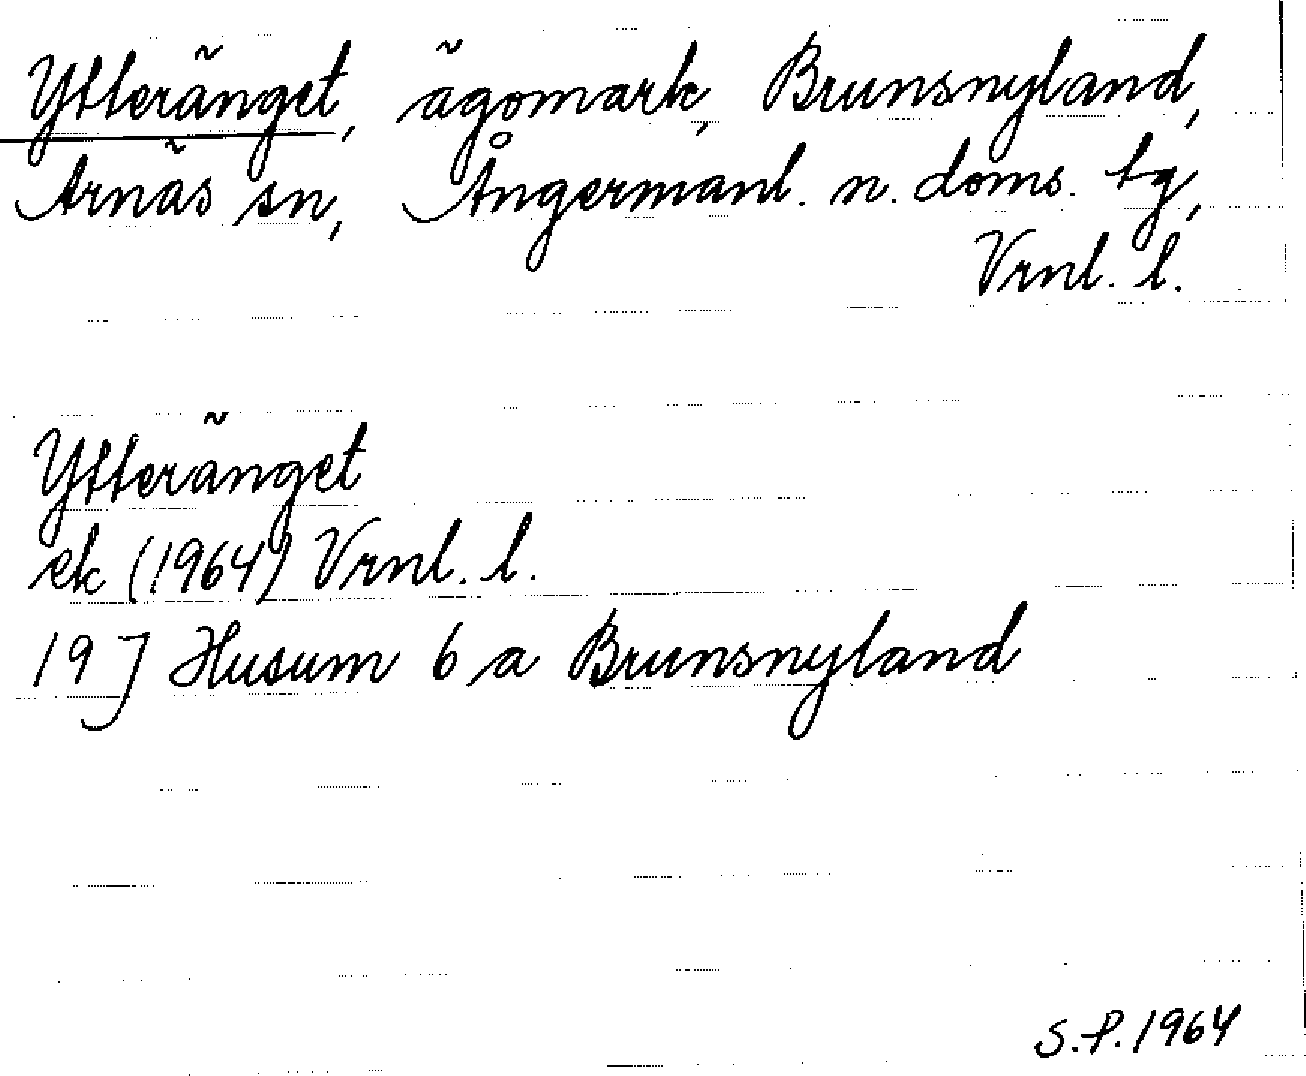 Ytteränget, ägomark, Brunsnyland,
Arnäs sn, Ångermanl. n. doms. tg,
Vrnl. l.
Ytteränget
ek (1964) Vrnl. l.
19J Husum 6 a Brunsnyland
S.P. 1964